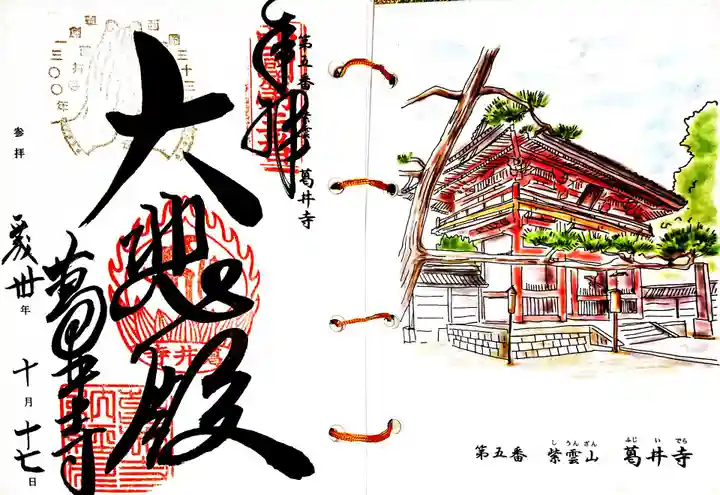 奉拝
第五番 紫雲山 葛井寺
大悲殿
葛井寺
参拝
卅年
十月十七日
一三〇〇年
葛井寺
第五番 紫雲山 葛井寺
し うん ざん ふじ い でら